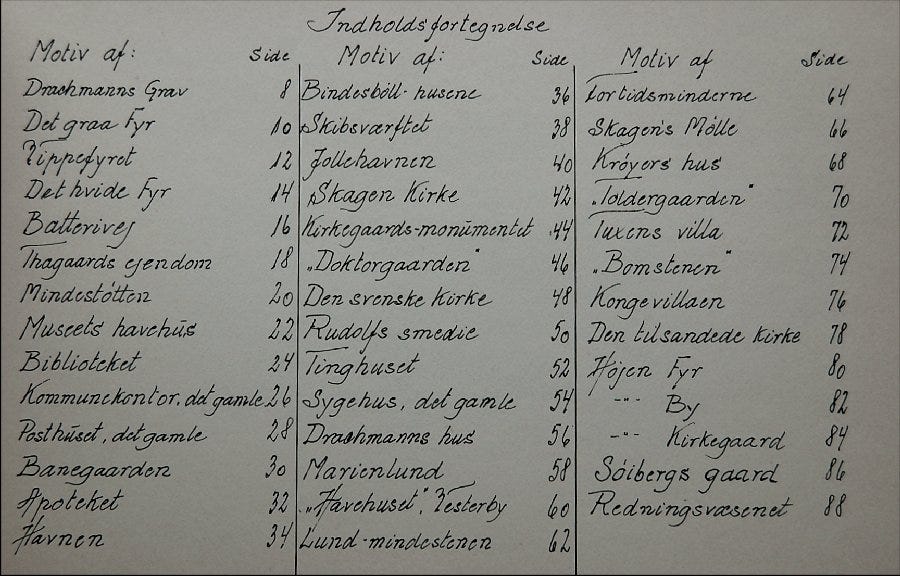 Indholdsfortegnelse
Motiv af: Side
Drachmanns Grav 8
Det graa Fyr 10
Vippefyret 12
Det hvide Fyr 14
Batterivej 16
Thagaards ejendom 18
Mindestötten 20
Museets havehus 22
Biblioteket 24
Kommunekontor, det gamle 26
Posthuset, det gamle 28
Banegaarden 30
Apoteket 32
Havnen 34
Motiv af: Side
Bindesböll-husene 36
Skibsværftet 38
Jollehavnen 40
Skagen Kirke 42
Kirkegaards-monumentet 44
„Doktorgaarden" 46
Den svenske Kirke 48
Rudolfs smedie 50
Tinghuset 52
Sygehus, det gamle 54
Drachmanns hus 56
Marienlund 58
„Havehuset", Vesterby 60
Lund-mindestenen 62
Motiv af Side
Fortidsminderne 64
Skagens Mölle 66
Kröyers hus 68
„Toldergaarden" 70
Tuxens villa 72
„Bomstenen" 74
Kongevillaen 76
Den tilsandede Kirke 78
Höjen Fyr 80
-"- By 82
-"- Kirkegaard 84
Söibergs gaard 86
Redningsvæsenet 88